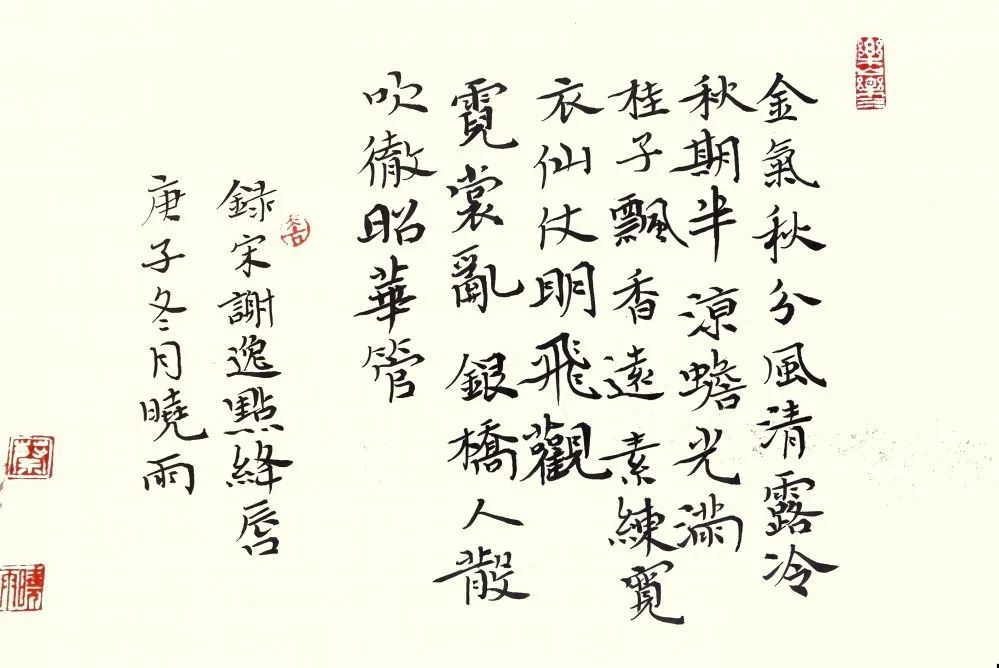 金氣秋分風清露冷
秋期半 涼蟾光滿
桂子飄香遠 素練寬
衣仙仗明飛觀
霓裳亂 銀橋人散
吹徹昭華管
録宋謝逸點絳唇
庚子冬月曉雨